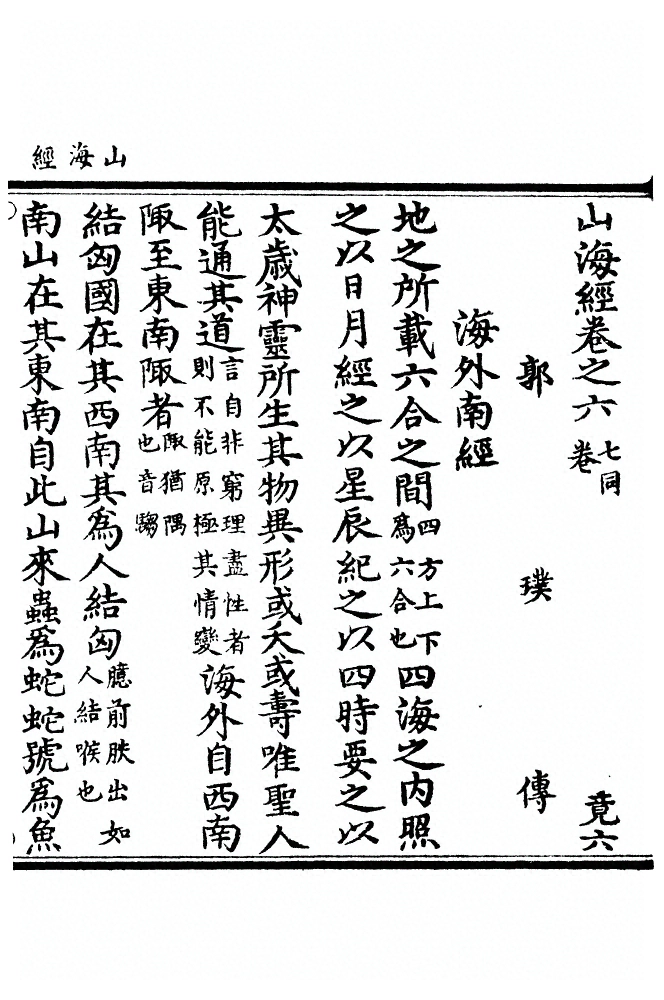 山海經
山海經卷之六 七同卷 竟六
郭璞傳
海外南經
地之所載六合之間四方上下為六合也四海之内照
之以日月經之以星辰紀之以四時要之以
太歲神靈所生其物異形或夭或壽唯聖人
能通其道言自非窮理盡性者則不能原極其情變海外自西南
陬至東南陬者陬猶隅也音騶
結匈國在其西南其為人結匈臆前胅出如人結喉也
南山在其東南自此山來蟲為蛇蛇號為魚